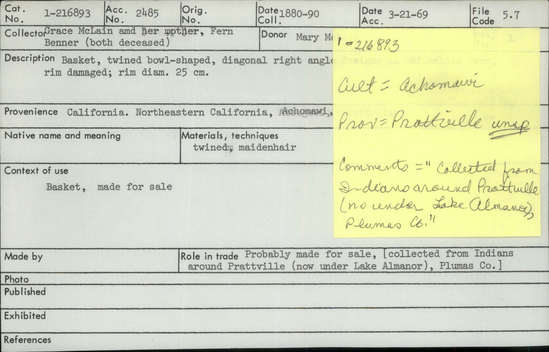 Cat. No. 1-216893 Acc. No. 2485 Orig. No. Date Coll. 1880-90 Acc. Date 3-21-69 File Code 5.7
Collector Grace McLain amd her mother, Fern Benner (both deceased) Donor Mary Mc
Description Basket, twined bowl-shaped, diagonal right angle
rim damaged; rim diam. 25 cm.
Provenience California. Northeastern California, Achomawi,
Native name and meaning
Materials, techniques
twined, maidenhair
Context of use
Basket, made for sale
Made by
Role in trade Probably made for sale, [collected from Indians
around Prattville (now under Lake Almanor), Plumas Co.]
Photo
Published
Exhibited
References
1-216893
Cult = Achomawi
Prov = Prattville
Comments = "Collected from
Indians around Prattville
(no under Lake Almanor),
Plumas Co."